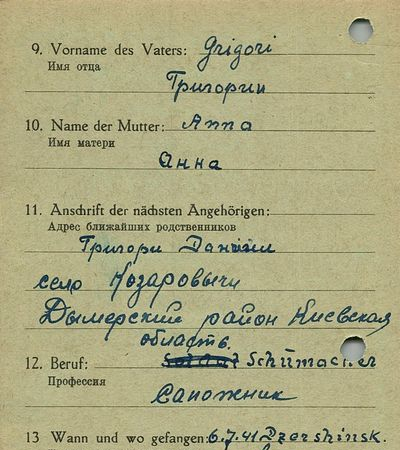 9. Vorname des Vaters: Grigori
Имя отца
Григории
10. Name der Mutter: Anna
Имя матери
Анна
11. Anschrift der nächsten Angehörigen:
Адрес ближайших родственников
Григори Даниил
село Козаровычи
Дымерский район Киевская
область.
12. Beruf: Schumacher
Профессия
Сапожник
13 Wann und wo gefangen: 6.7.41 Dzershinsk.